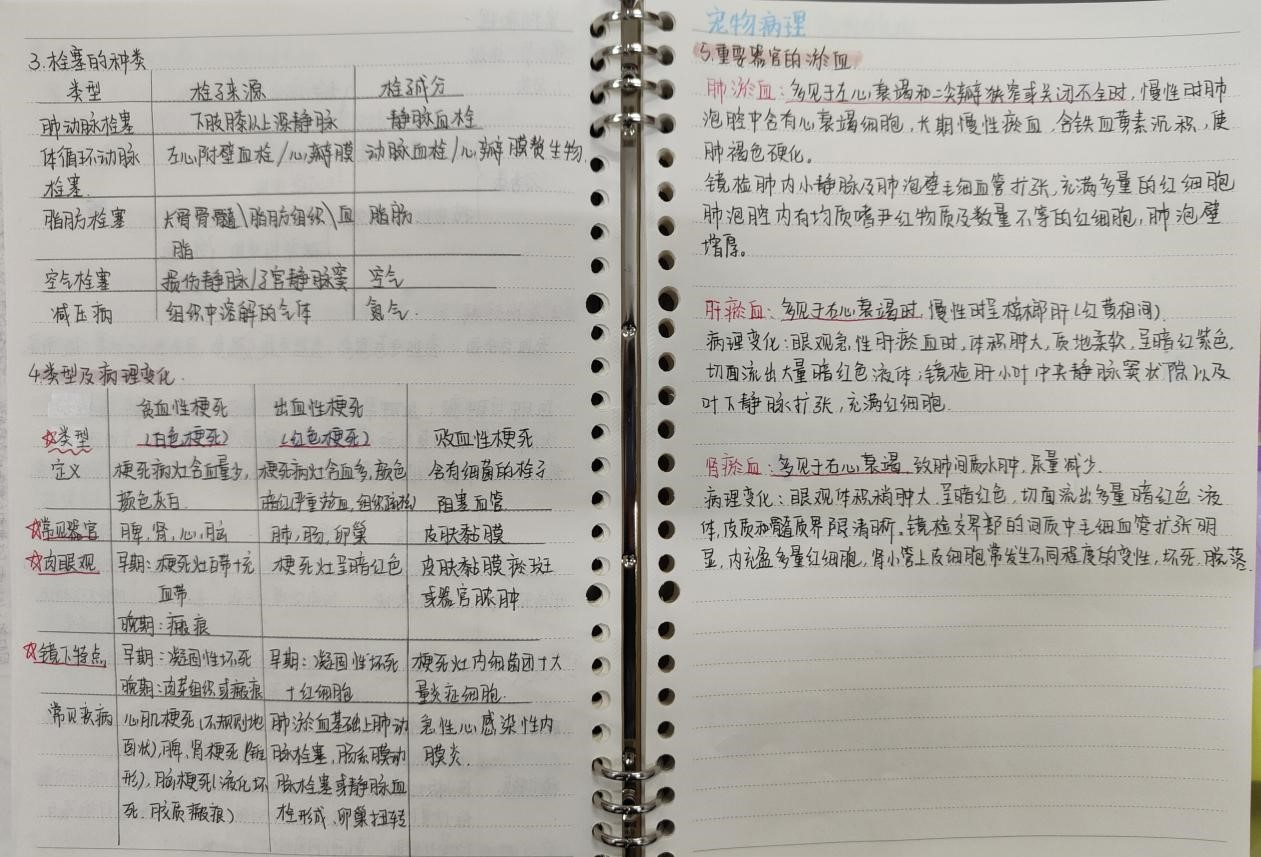 3.栓塞的种类
类型 栓子来源 栓子成分
肺动脉栓塞 下肢膝以上深静脉 静脉血栓
体循环动脉 左心附壁血栓/心瓣膜 动脉血栓/心瓣膜赘生物
栓塞.
脂肪栓塞 长骨骨髓\脂肪组织\血 脂肪
脂
空气栓塞 损伤静脉/子宫静脉窦 空气
减压病 组织中溶解的气体 氮气.
4.类型及病理变化.
贫血性梗死 出血性梗死
☆类型 (白色梗死) (红色梗死) 败血性梗死
定义 梗死病灶含血量少, 梗死病灶含血多,颜色 含有细菌的栓子
颜色灰白. 暗红严重淤血,组织疏松 阻塞血管.
☆常见器官 脾,肾,心,脑 肺,肠,卵巢 皮肤黏膜
☆肉眼观 早期:梗死灶白带+充 梗死灶呈暗红色 皮肤黏膜瘀斑
血带 或器官脓肿
晚期:瘢痕
☆镜下特点 早期:凝固性坏死 早期:凝固性坏死 梗死灶内细菌团+大
晚期:肉芽组织或瘢痕 +红细胞 量炎症细胞.
常见疾病 心肌梗死(不规则地 肺淤血基础上肺动 急性心感染性内
图状),脾,肾梗死(锥 脉栓塞,肠系膜动 膜炎.
形),脑梗死(液化坏 脉栓塞或静脉血
死.胶质瘢痕) 栓形成,卵巢扭转
宠物病理
5.重要器官的淤血.
肺淤血:多见于左心衰竭和二尖瓣狭窄或关闭不全时,慢性时肺
泡腔中含有心衰竭细胞,长期慢性瘀血,含铁血黄素沉积,使
肺褐色硬化。
镜检肺内小静脉及肺泡壁毛细血管扩张,充满多量的红细胞
肺泡腔内有均质嗜尹红物质及数量不等的红细胞,肺泡壁
增厚。
肝瘀血:多见于右心衰竭时,慢性时呈槟榔肝(红黄相间).
病理变化:眼观急性肝瘀血时,体积肿大,质地柔软,呈暗红紫色,
切面流出大量暗红色液体;镜检肝小叶中央静脉窦状隙以及
叶下静脉扩张,充满红细胞.
肾瘀血:多见于右心衰竭,致肺间质水肿.尿量减少.
病理变化:眼观体积稍肿大,呈暗红色,切面流出多量暗红色液
体,皮质和髓质界限清晰。镜检交界部的间质中毛细血管扩张明
显,内充盈多量红细胞,肾小管上皮细胞常发生不同程度的变性,坏死.脱落.